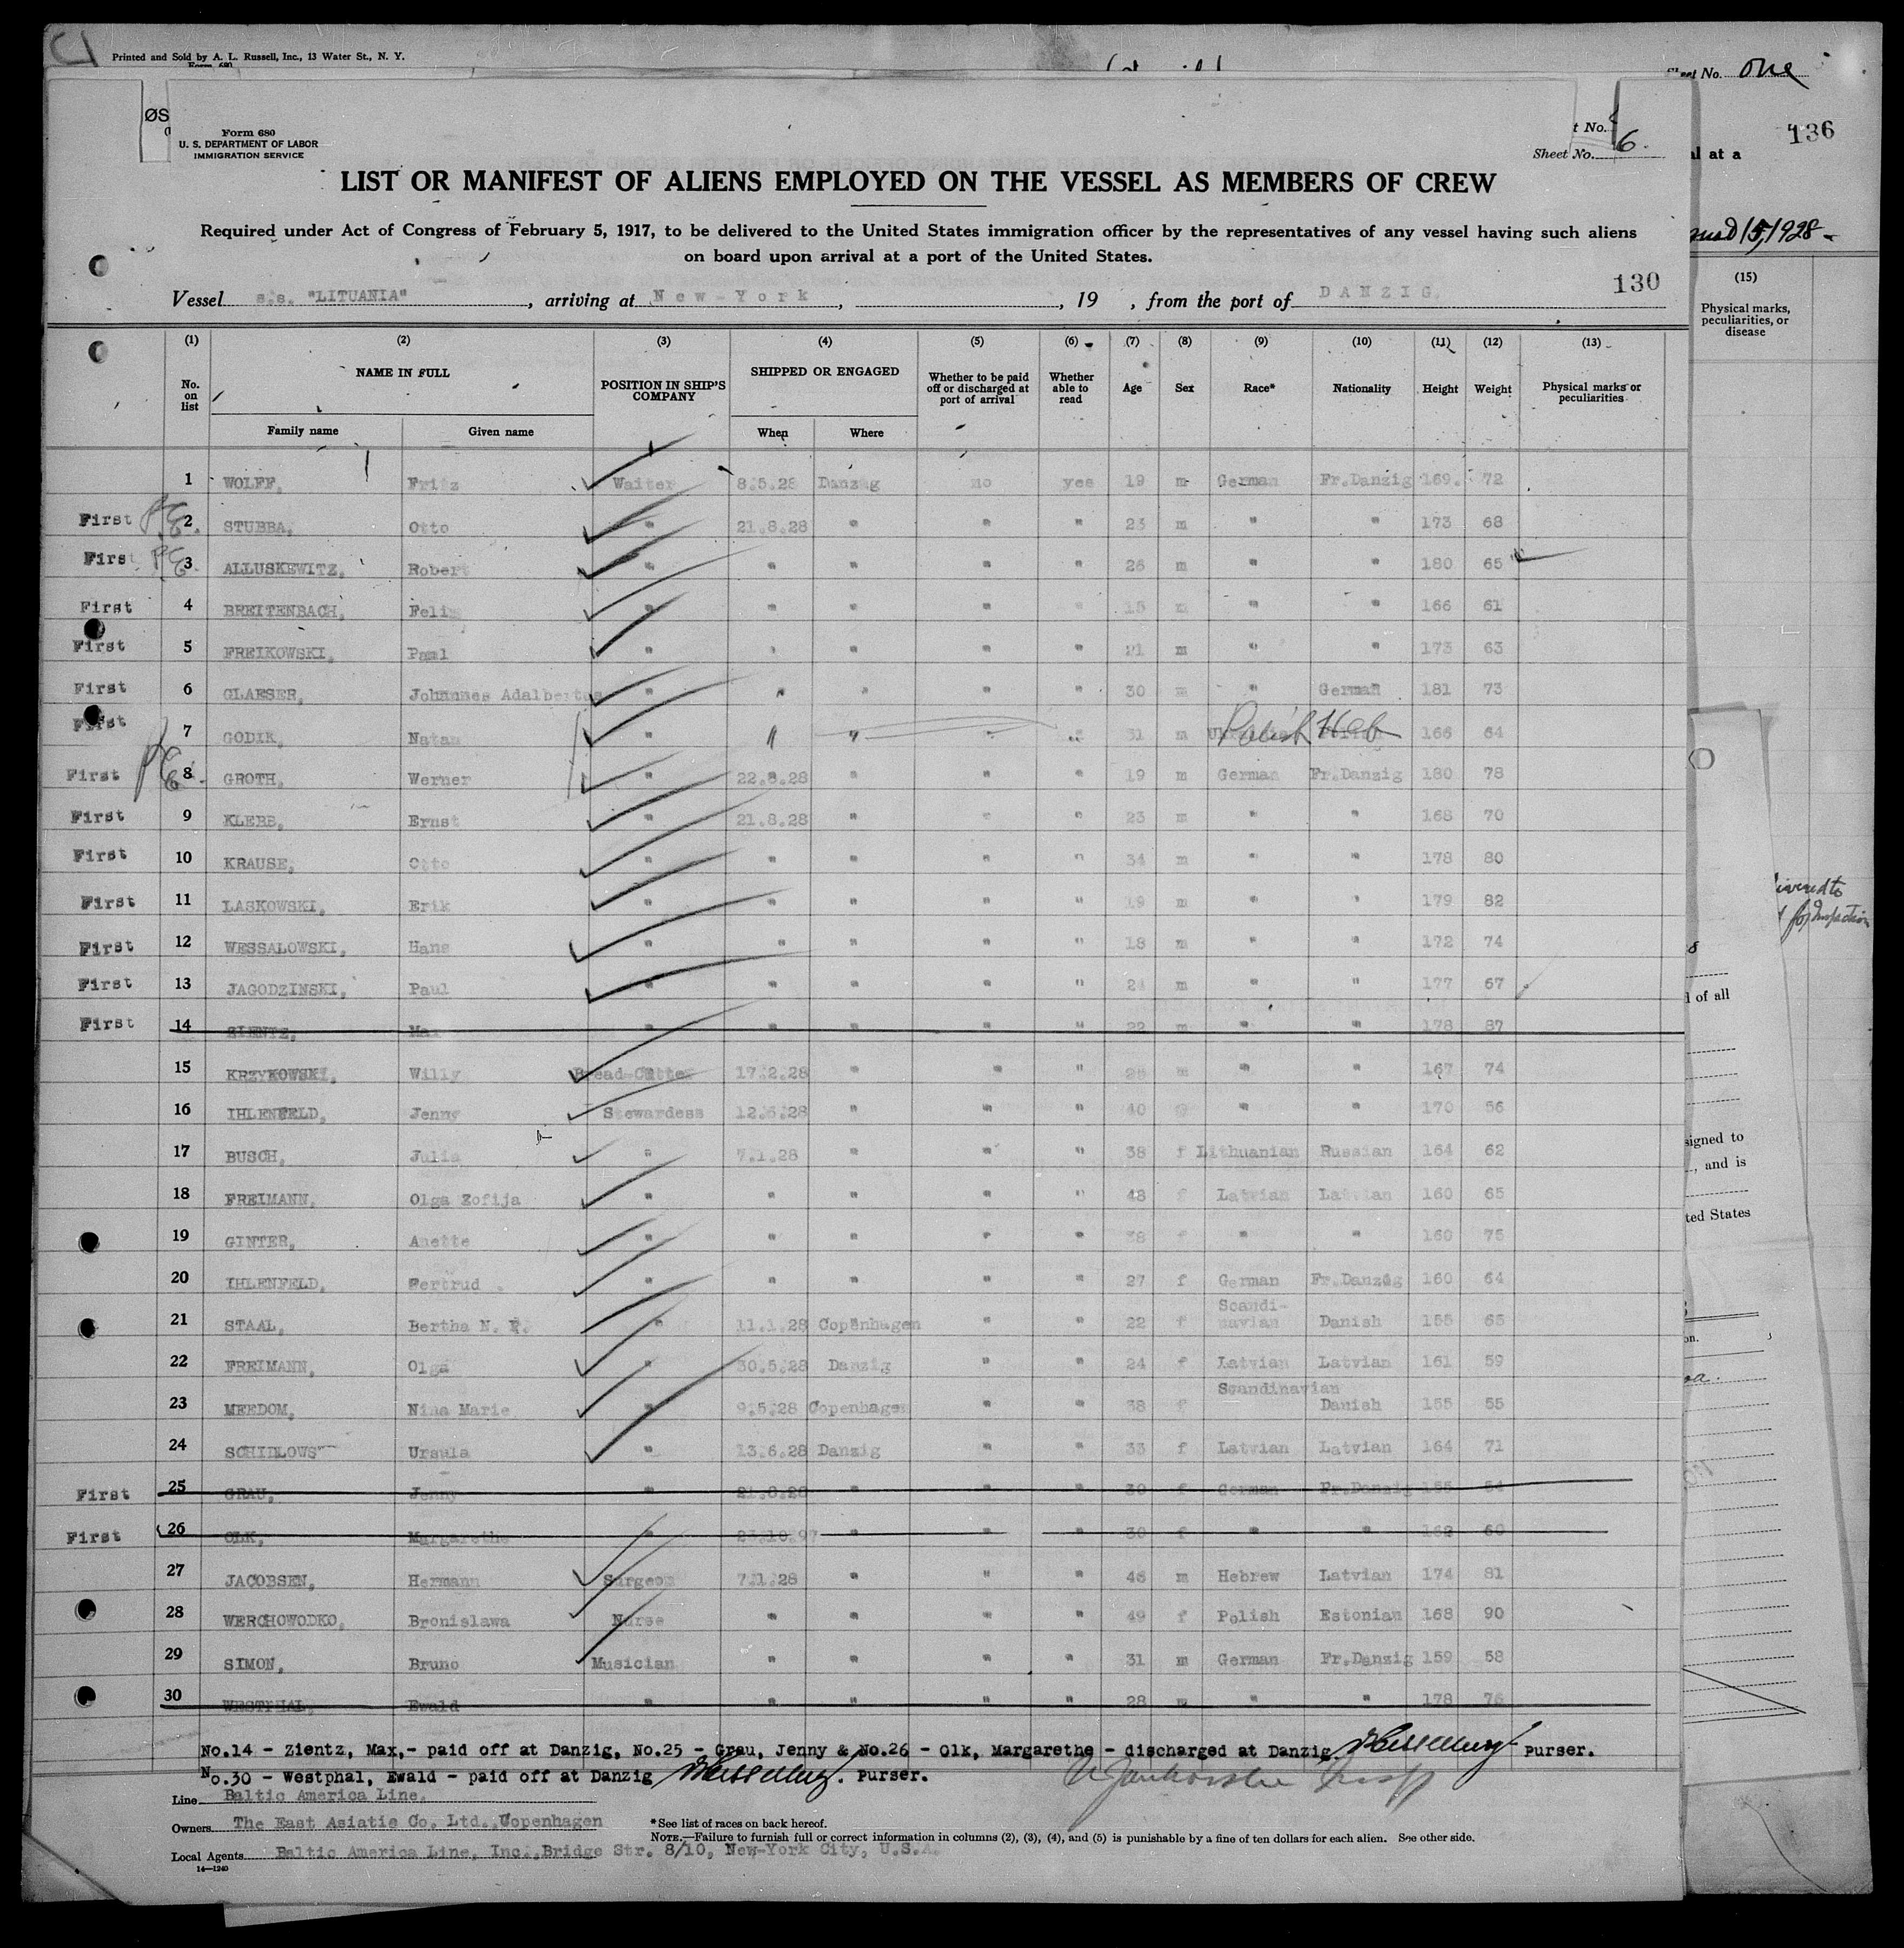 Printed and Sold by A. L. Russell, Inc., 13 Water St., N. Y.
Form 680
Sheet No. one
136
ØS
Form 680
U. S. DEPARTMENT OF LABOR
IMMIGRATION SERVICE
t No.
Sheet No. 6.
al at a
LIST OR MANIFEST OF ALIENS EMPLOYED ON THE VESSEL AS MEMBERS OF CREW
Required under Act of Congress of February 5, 1917, to be delivered to the United States immigration officer by the representatives of any vessel having such aliens
on board upon arrival at a port of the United States.
15, 1928
130
Vessel s.s. "LITUANIA", arriving at New-York, , 19 , from the port of DANZIG.
(1) (2) (3) (4) (5) (6) (7) (8) (9) (10) (11) (12) (13)
No. on list NAME IN FULL Family name Given name POSITION IN SHIP'S COMPANY SHIPPED OR ENGAGED When Where Whether to be paid off or discharged at port of arrival Whether able to read Age Sex Race* Nationality Height Weight Physical marks or peculiarities
(15)
Physical marks, peculiarities, or disease
1 WOLFF, Fritz Waiter 8.5.28 Danzig no yes 19 m German Fr.Danzig 169. 72
First 2 STUBBA, Otto " 21.8.28 " " " 23 m " " 173 68
First 3 ALLUSKEWITZ, Robert " " " " " 26 m " " 180 65
First 4 BREITENBACH, Felix " " " " " m " " 166 61
First 5 FREIKOWSKI, Paul " " " " " 21 m " " 173 63
First 6 GLAESER, Johannes Adalbertus " " " " " 30 m " German 181 73
First 7 GODIK, Natan " " " " " 31 m Polish Heb 166 64
First 8 GROTH, Werner " 22.8.28 " " " 19 m German Fr.Danzig 180 78
First 9 KLEBB, Ernst " 21.8.28 " " " 23 m " " 168 70
First 10 KRAUSE, Otto " " " " " 34 m " " 178 80
First 11 LASKOWSKI, Erik " " " " " 19 m " " 179 82
First 12 WESSALOWSKI, Hans " " " " " 18 m " " 172 74
First 13 JAGODZINSKI, Paul " " " " " 24 m " " 177 67
First 14 ZIENTZ, Max " " " " " 22 m " " 178 87
15 KRZYKOWSKI, Willy Bread-Cutter 17.2.28 " " " m " " 167 74
16 IHLENFELD, Jenny Stewardess 12.6.28 " " " 40 " " 170 56
17 BUSCH, Julia " 7.1.28 " " " 38 f Lithuanian Russian 164 62
18 FREIMANN, Olga Zofija " " " " " 48 f Latvian Latvian 160 65
19 GINTER, Anette " " " " " 38 f " " 160 75
20 IHLENFELD, Gertrud " " " " " 27 f German Fr.Danzig 160 64
21 STAAL, Bertha N. " 11.1.28 Copenhagen " " 22 f Scandi-navian Danish 155 65
22 FREIMANN, Olga " 30.5.28 Danzig " " 24 f Latvian Latvian 161 59
23 MEEDOM, Nina Marie " 9.5.28 Copenhagen " " 38 f Scandinavian Danish 155 55
24 SCHIDLOWS Ursula " 13.6.28 Danzig " " 33 f Latvian Latvian 164 71
First 25 GRAU, Jenny " 21.8.28 " " " 30 f German Fr.Danzig 155 54
First 26 OLK, Margarethe " 23.10.97 " " " 30 f " " 162 60
27 JACOBSEN, Hermann Surgeon 7.1.28 " " " 46 m Hebrew Latvian 174 81
28 WERCHOWODKO, Bronislawa Nurse " " " " 49 f Polish Estonian 168 90
29 SIMON, Bruno Musician " " " " 31 m German Fr.Danzig 159 58
30 WESTPHAL, Ewald " " " " " 28 m " " 178 76
ivered to
for Inspection
d of all
signed to
, and is
ted States
No.14 - Zientz, Max,- paid off at Danzig, No.25 - Grau, Jenny & No.26 - Olk, Margarethe - discharged at Danzig. Purser.
No.30 - Westphal, Ewald - paid off at Danzig Purser.
Line Baltic America Line.
Owners The East Asiatic Co. Ltd., Copenhagen
*See list of races on back hereof.
NOTE.—Failure to furnish full or correct information in columns (2), (3), (4), and (5) is punishable by a fine of ten dollars for each alien. See other side.
Local Agents Baltic America Line, Inc., Bridge Str. 8/10, New-York City, U.S.A.
14—1240